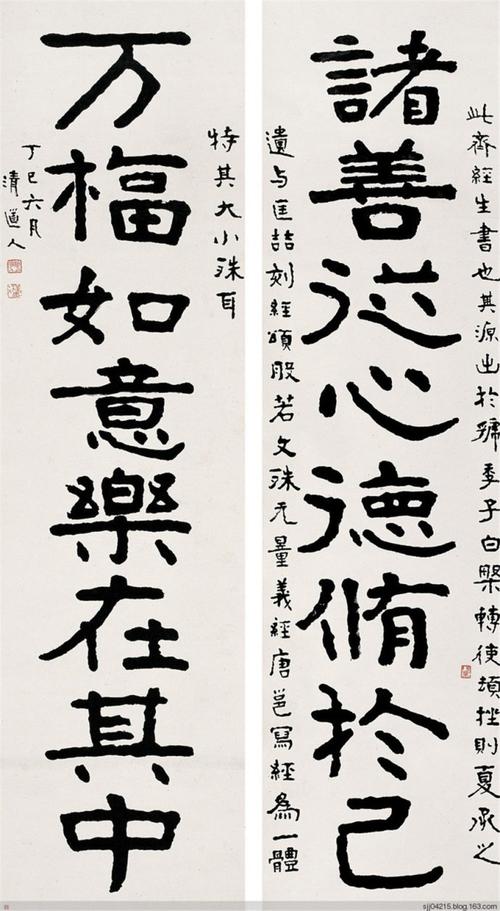 此齊經生書也其源出於虢季子白槃轉使頓挫則夏承之
諸善從心德脩於己
遺与匡喆刻經頌般若文殊无量義經唐邕寫經為一體
特其大小殊耳
万福如意樂在其中
丁巳六月
清道人
sjj04215.blog.163.com